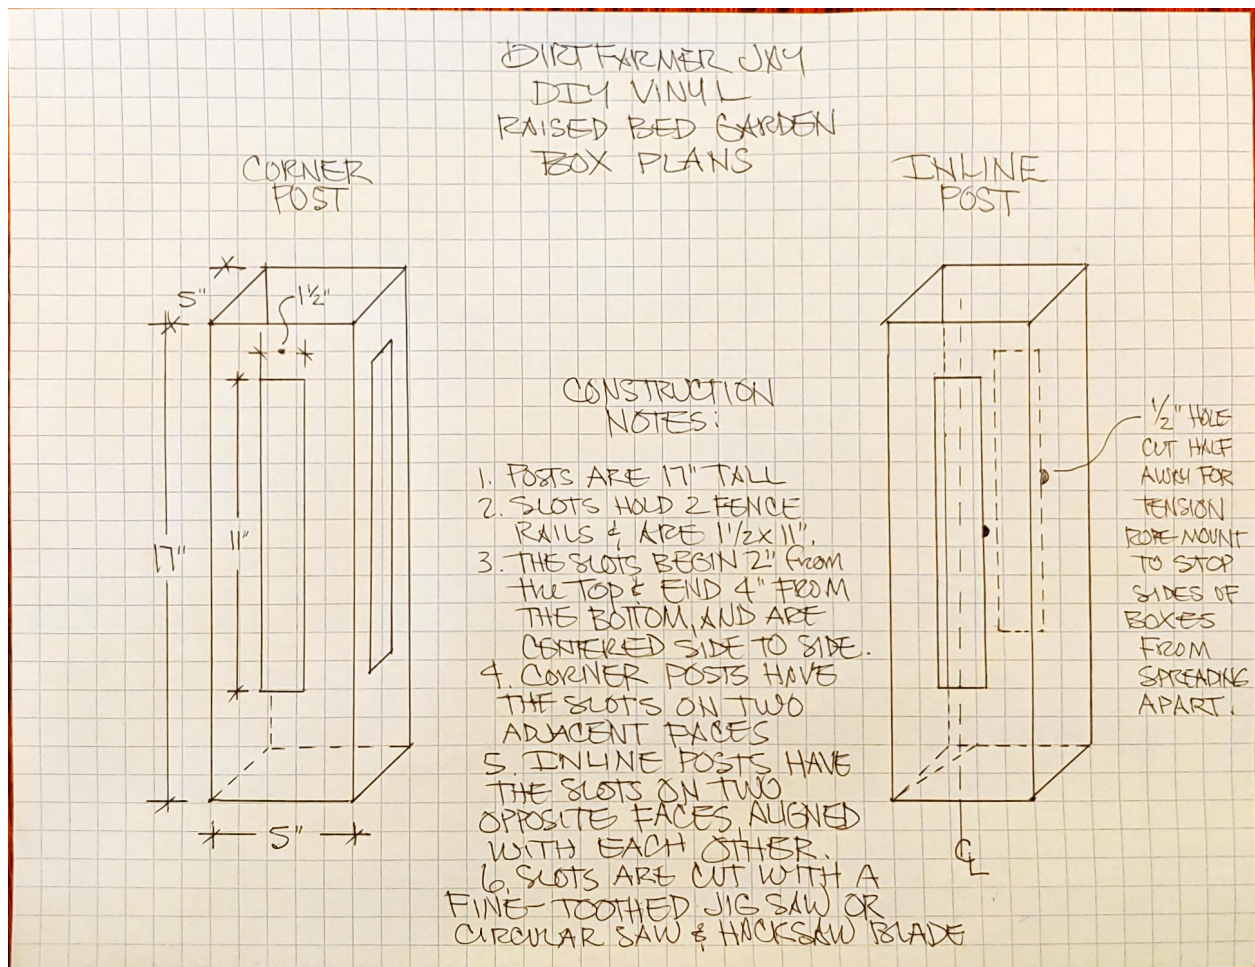 DIRT FARMER JAY
DIY VINYL
RAISED BED GARDEN
BOX PLANS
CORNER
POST
INLINE
POST
5"
1½"
17"
11"
5"
CONSTRUCTION
NOTES:
1. POSTS ARE 17" TALL
2. SLOTS HOLD 2 FENCE
RAILS & ARE 1½ X 11".
3. THE SLOTS BEGIN 2" from
the TOP & END 4" FROM
THE BOTTOM, AND ARE
CENTERED SIDE TO SIDE.
4. CORNER POSTS HAVE
THE SLOTS ON TWO
ADJACENT FACES
5. INLINE POSTS HAVE
THE SLOTS ON TWO
OPPOSITE FACES ALIGNED
WITH EACH OTHER.
6. SLOTS ARE CUT WITH A
FINE-TOOTHED JIG SAW OR
CIRCULAR SAW & HACKSAW BLADE
½" HOLE
CUT HALF
AWAY FOR
TENSION
ROPE-MOUNT
TO STOP
SIDES OF
BOXES
FROM
SPREADING
APART.
℄